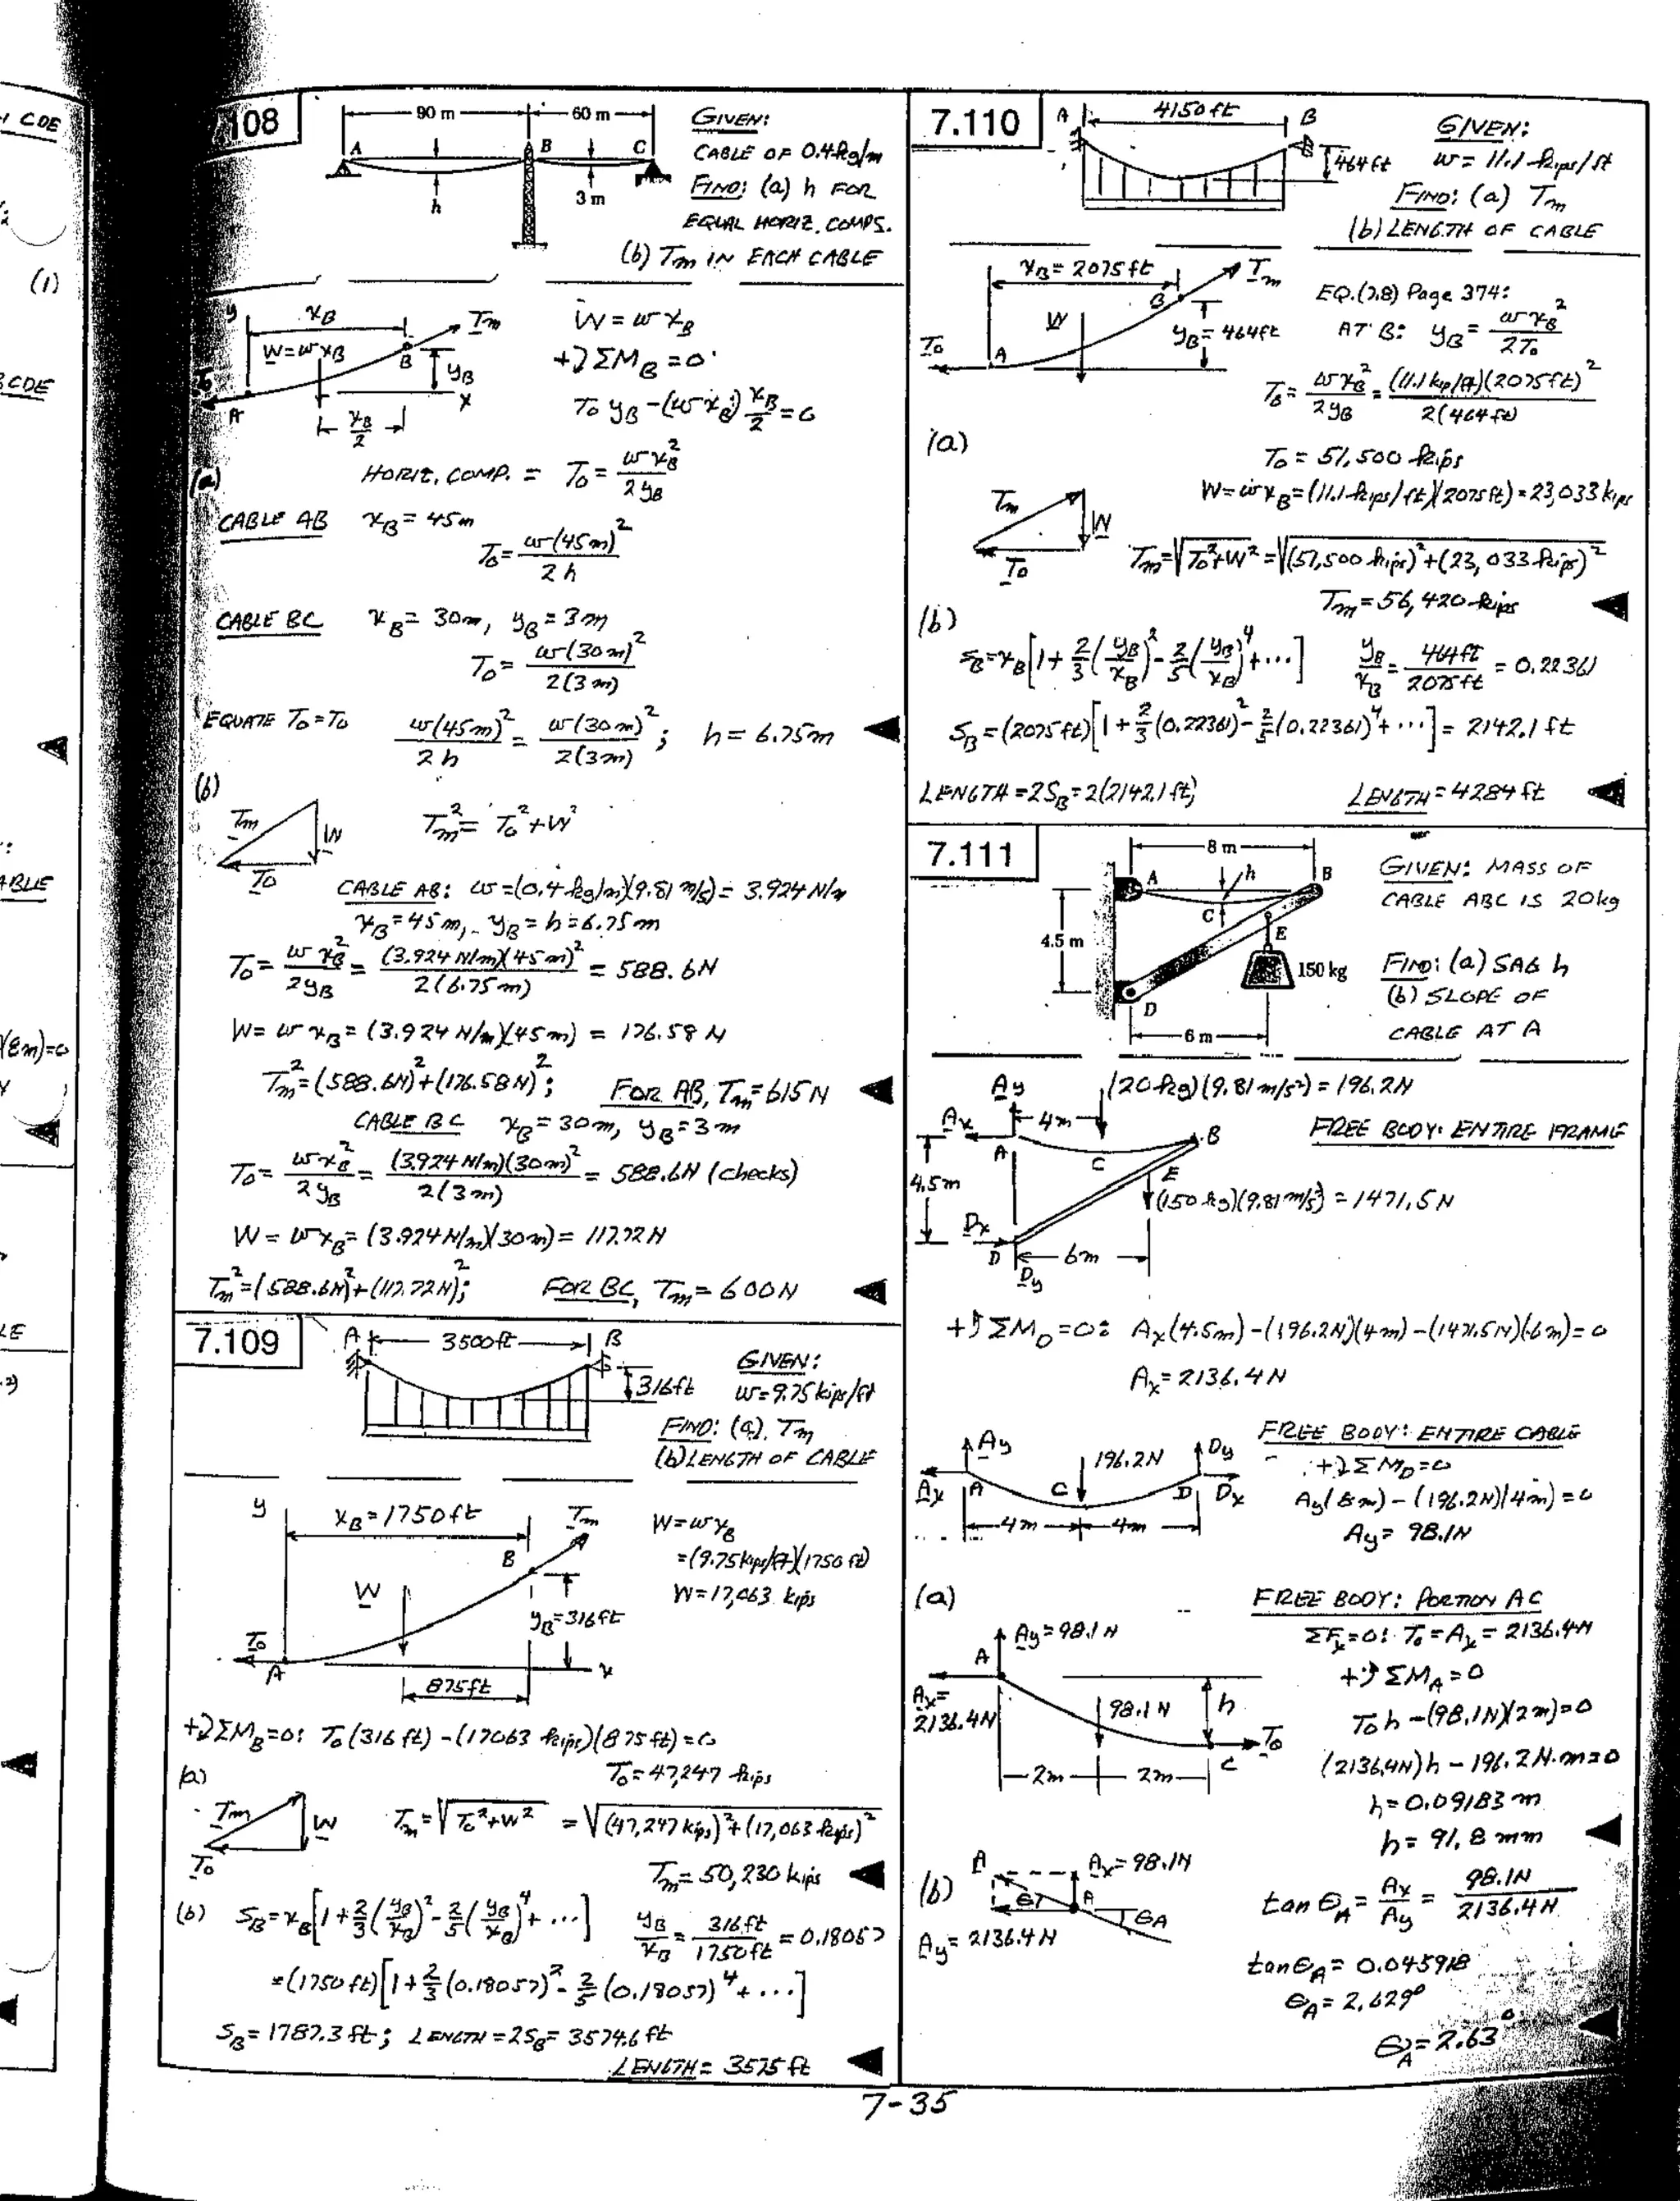 108
90 m
60 m
A
B
C
h
3 m
GIVEN:
CABLE OF 0.4 kg/m
FIND: (a) h FOR
EQUAL HORIZ. COMPS.
(b) Tm IN EACH CABLE
y
xB
Tm
W=wxB
B
yB
A
x
xB/2
W = w xB
+↻ΣMB = 0
To yB - (w xB) xB/2 = 0
(a)
HORIZ. COMP. = To = w xB²/2yB
CABLE AB xB = 45 m
To = w(45m)²/2h
CABLE BC xB = 30m, yB = 3 m
To = w(30 m)²/2(3 m)
EQUATE To = To w(45m)²/2h = w(30m)²/2(3m) ; h = 6.75m
(b)
Tm
W
To
Tm² = To² + W²
CABLE AB: w = (0.4 kg/m)(9.81 m/s) = 3.924 N/m
xB = 45 m, yB = h = 6.75 m
To = w xB²/2yB = (3.924 N/m)(45m)²/2(6.75m) = 588.6N
W = w xB = (3.924 N/m)(45m) = 176.58 N
Tm² = (588.6N)² + (176.58N)²; FOR AB, Tm = 615 N
CABLE BC xB = 30m, yB = 3 m
To = w xB²/2yB = (3.924 N/m)(30m)²/2(3m) = 588.6N (checks)
W = w xB = (3.924 N/m)(30m) = 117.72 N
Tm² = (588.6N)² + (117.72N)²; FOR BC, Tm = 600N
7.109
A
3500ft
B
316ft
GIVEN:
w = 9.75 kips/ft
FIND: (a). Tm
(b) LENGTH OF CABLE
y
xB = 1750ft
Tm
B
W
yB = 316ft
To
A
x
875ft
W = w xB
= (9.75 kips/ft)(1750 ft)
W = 17,063 kips
+↻ΣMB = 0: To(316 ft) - (17063 kips)(875 ft) = 0
(a)
To = 47,247 kips
Tm
W
To
Tm = √To² + W² = √(47,247 kips)² + (17,063 kips)²
Tm = 50,230 kips
(b) sB = xB[1 + 2/3(yB/xB)² - 2/5(yB/xB)⁴ + ...] yB/xB = 316ft/1750ft = 0.18057
= (1750 ft)[1 + 2/3(0.18057)² - 2/5(0.18057)⁴ + ...]
sB = 1787.3 ft; LENGTH = 2sB = 3574.6 ft
LENGTH = 3575 ft
7.110
A
4150ft
B
464ft
GIVEN:
w = 11.1 kips/ft
FIND: (a) Tm
(b) LENGTH OF CABLE
xB = 2075ft
Tm
B
W
yB = 464ft
To
A
EQ.(7.8) Page 374:
AT B: yB = w xB²/2To
To = w xB²/2yB = (11.1 kip/ft)(2075ft)²/2(464ft)
(a)
To = 51,500 kips
W = w xB = (11.1 kips/ft)(2075ft) = 23,033 kips
Tm
W
To
Tm = √To² + W² = √(51,500 kips)² + (23,033 kips)²
Tm = 56,420 kips
(b)
sB = xB[1 + 2/3(yB/xB)² - 2/5(yB/xB)⁴ + ...] yB/xB = 464ft/2075ft = 0.22361
sB = (2075ft)[1 + 2/3(0.22361)² - 2/5(0.22361)⁴ + ...] = 2142.1 ft
LENGTH = 2sB = 2(2142.1 ft) LENGTH = 4284 ft
7.111
8 m
A
h
B
C
E
4.5 m
150 kg
D
6 m
GIVEN: MASS OF
CABLE ABC IS 20kg
FIND: (a) SAG h
(b) SLOPE OF
CABLE AT A
Ay
(20 kg)(9.81 m/s²) = 196.2N
Ax
4m
B
A
C
E
FREE BODY: ENTIRE FRAME
4.5m
(150 kg)(9.81 m/s²) = 1471.5N
Dx
D
6m
Dy
+↺ΣMD = 0: Ax(4.5m) - (196.2N)(4m) - (1471.5N)(6m) = 0
Ax = 2136.4 N
FREE BODY: ENTIRE CABLE
Ay
196.2N
Dy
Ax
A
C
D
Dx
4m
4m
+↻ΣMD = 0
Ay(8m) - (196.2N)(4m) = 0
Ay = 98.1N
(a)
FREE BODY: PORTION AC
Ay = 98.1 N
A
ΣFx = 0: To = Ax = 2136.4N
+↺ΣMA = 0
Ax=
2136.4N
98.1 N
h
To
C
2m
2m
To h - (98.1N)(2m) = 0
(2136.4N)h - 196.2 N·m = 0
h = 0.09183 m
h = 91.8 mm
(b)
A
Ax = 98.1N
θA
A
Ay = 2136.4 N
tan θA = Ax/Ay = 98.1N/2136.4N
tan θA = 0.045918
θA = 2.629°
θA = 2.63°
7-35
CDE
(1)
BCDE
ABLE
(8m)=0
LE